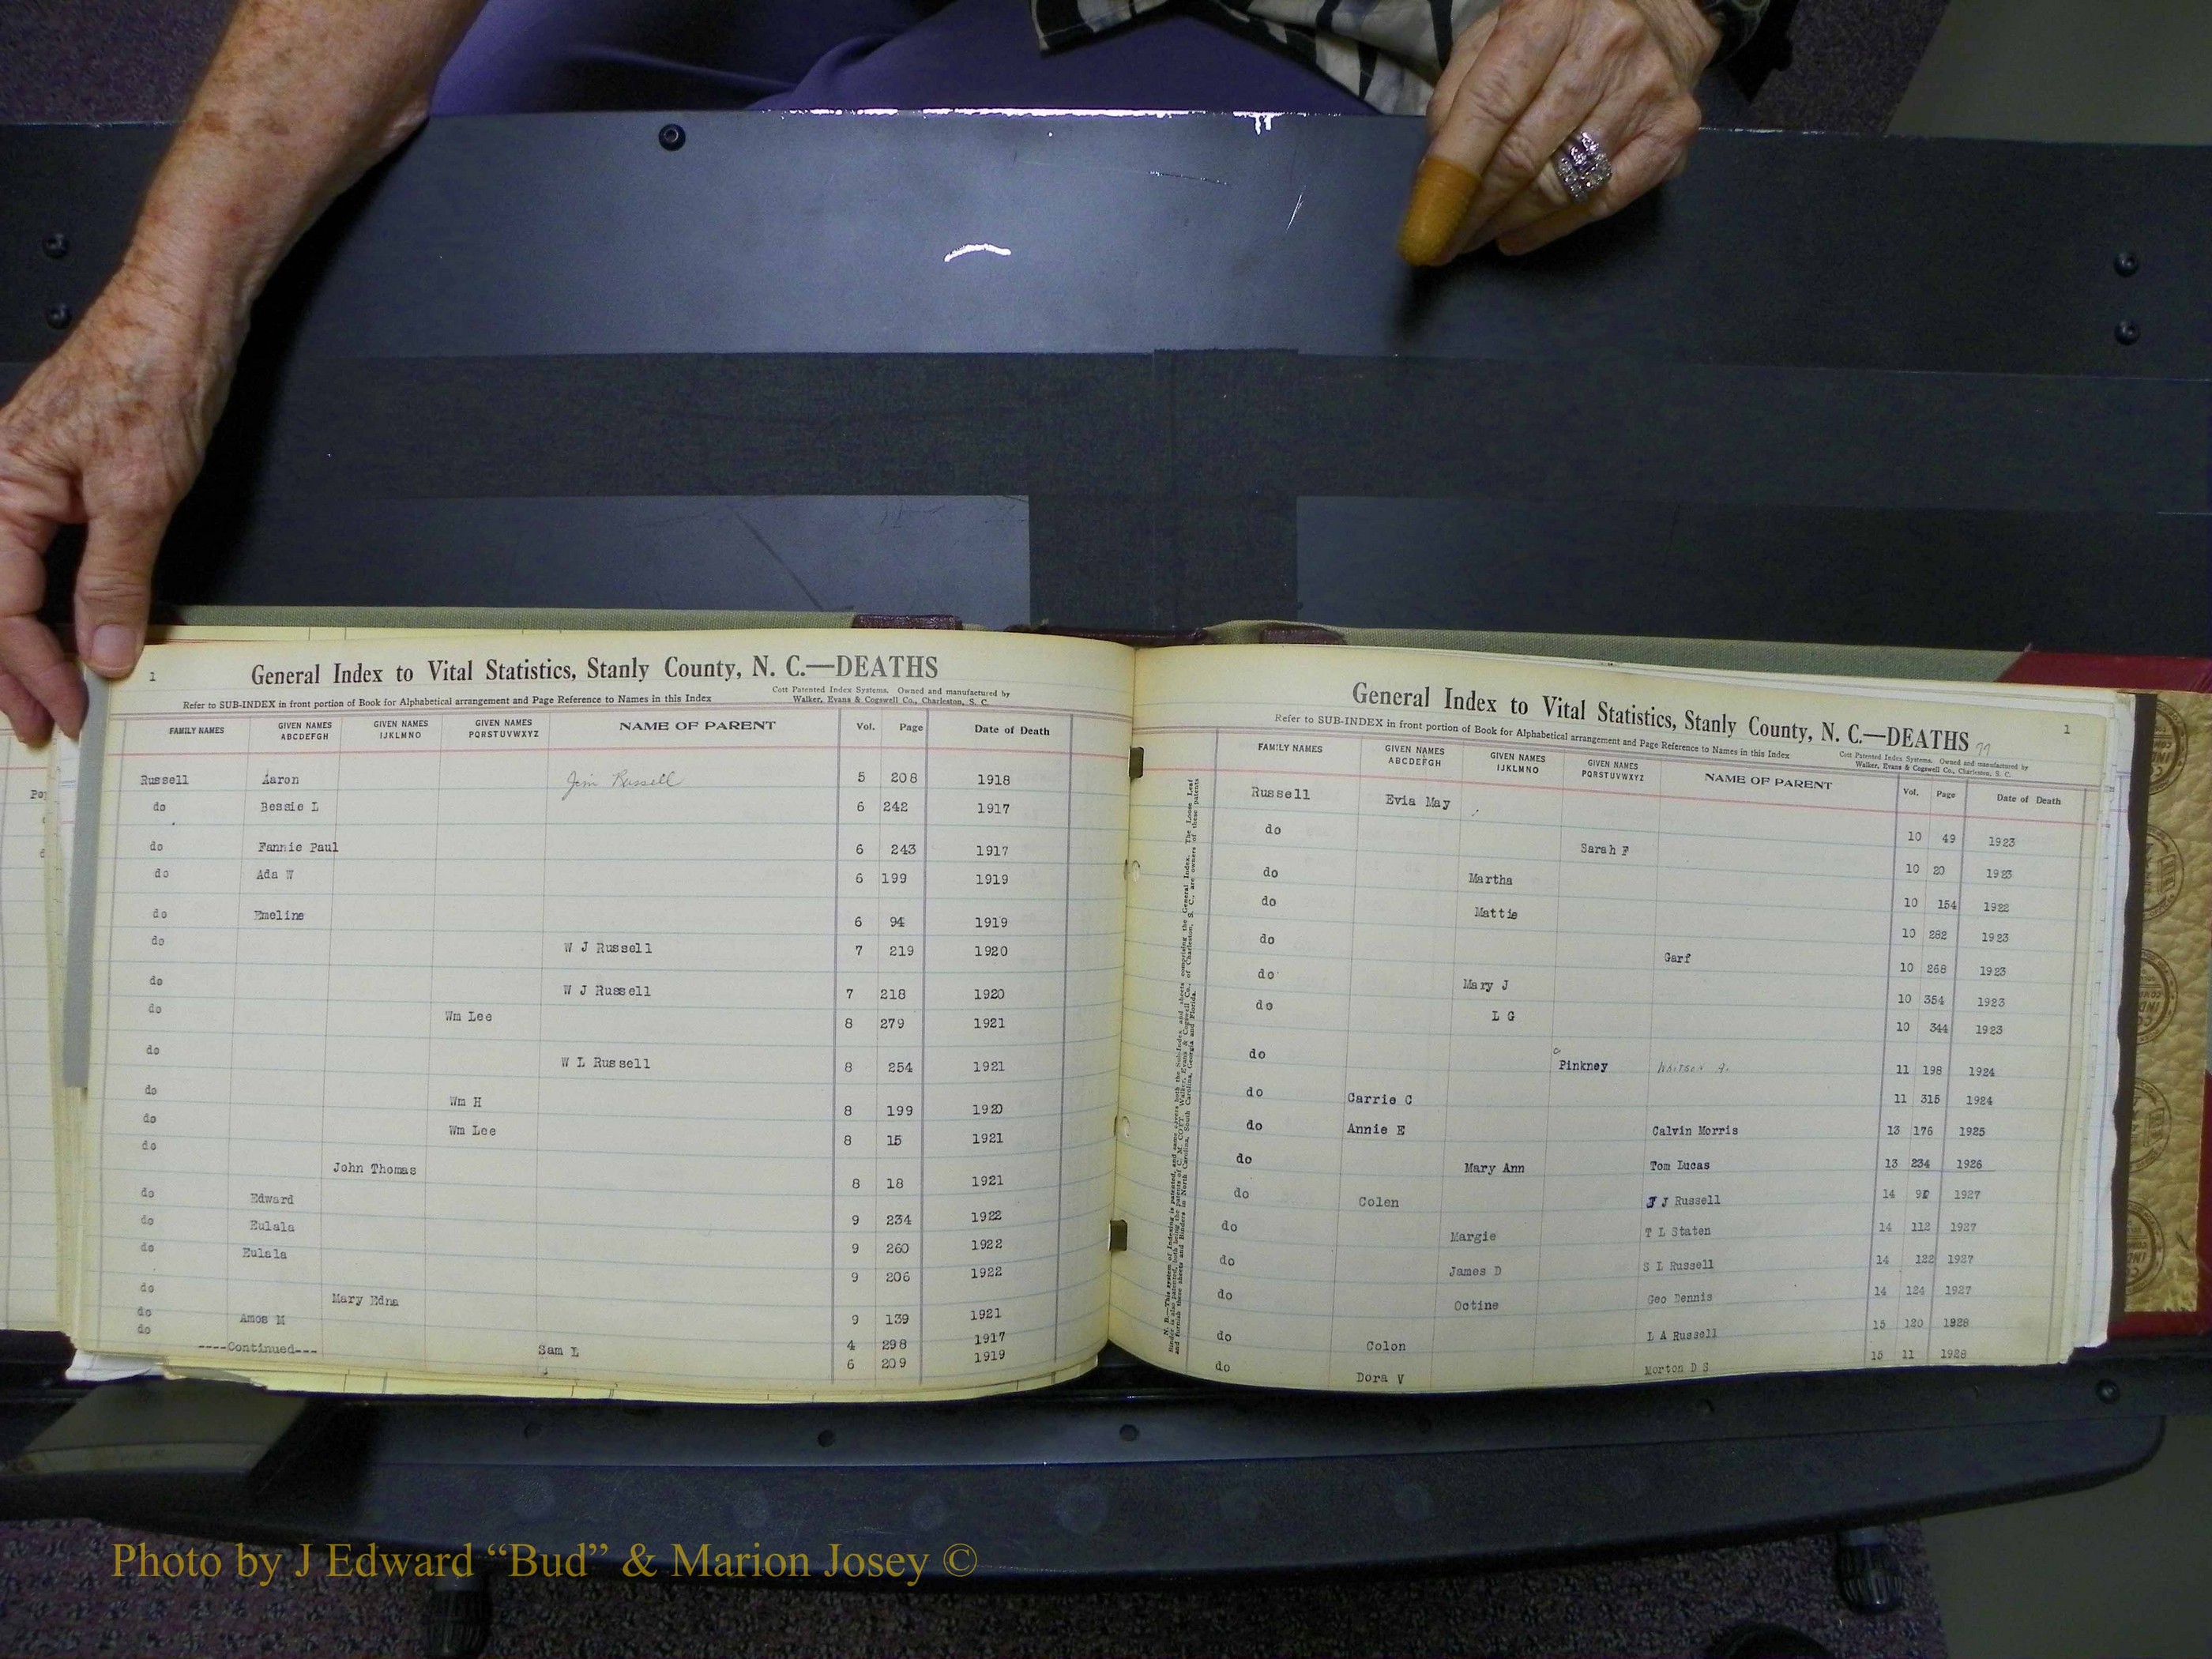 1
General Index to Vital Statistics, Stanly County, N. C.—DEATHS
Refer to SUB-INDEX in front portion of Book for Alphabetical arrangement and Page Reference to Names in this Index
Cott Patented Index Systems. Owned and manufactured by
Walker, Evans & Cogswell Co., Charleston, S. C.
FAMILY NAMES GIVEN NAMES ABCDEFGH GIVEN NAMES IJKLMNO GIVEN NAMES PQRSTUVWXYZ NAME OF PARENT Vol. Page Date of Death
Russell Aaron Jim Russell 5 208 1918
do Bessie L 6 242 1917
do Fannie Paul 6 243 1917
do Ada W 6 199 1919
do Emeline 6 94 1919
do W J Russell 7 219 1920
do W J Russell 7 218 1920
do Wm Lee 8 279 1921
do W L Russell 8 254 1921
do Wm H 8 199 1920
do Wm Lee 8 15 1921
do John Thomas 8 18 1921
do Edward 9 234 1922
do Eulala 9 260 1922
do Eulala 9 206 1922
do Mary Edna 9 139 1921
do Amos M 4 298 1917
do Sam L 6 209 1919
----Continued---
General Index to Vital Statistics, Stanly County, N. C.—DEATHS 77
1
Refer to SUB-INDEX in front portion of Book for Alphabetical arrangement and Page Reference to Names in this Index
Cott Patented Index Systems. Owned and manufactured by
Walker, Evans & Cogswell Co., Charleston, S. C.
FAMILY NAMES GIVEN NAMES ABCDEFGH GIVEN NAMES IJKLMNO GIVEN NAMES PQRSTUVWXYZ NAME OF PARENT Vol. Page Date of Death
Russell Evia May 10 49 1923
do Sarah F 10 20 1923
do Martha 10 154 1922
do Mattie 10 282 1923
do Garf 10 268 1923
do Mary J 10 354 1923
do L G 10 344 1923
do Pinkney Watson A. 11 198 1924
do Carrie C 11 315 1924
do Annie E Calvin Morris 13 176 1925
do Mary Ann Tom Lucas 13 234 1926
do Colen J J Russell 14 92 1927
do Margie T L Staten 14 112 1927
do James D S L Russell 14 122 1927
do Octine Geo Dennis 14 124 1927
do Colon L A Russell 15 120 1928
do Dora V Morton D S 15 11 1928
Photo by J Edward “Bud” & Marion Josey ©